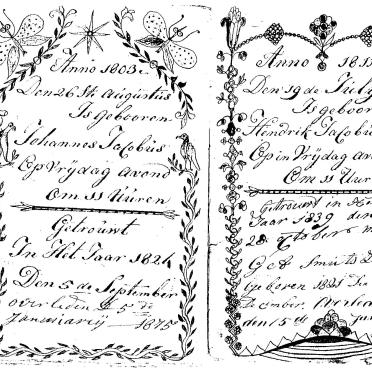 Anno 1803.
Den 26 St. Augustus
Is Gebooren
Johannes Jacobus
Op Vrijdag avond
Om 11 Uuren
Getrouwt
In Het Jaar 1826
Den 5 de September
overleden 5 de
Januiarij 1875
Anno 181
Den 19 de July
Is geboor
Hendrik Jacobu
Op in Vrijdag avo
Om 11 Uur
Getrouwt in
Jaar 1839 den
28 October
geboren 1821 die
den 15 d